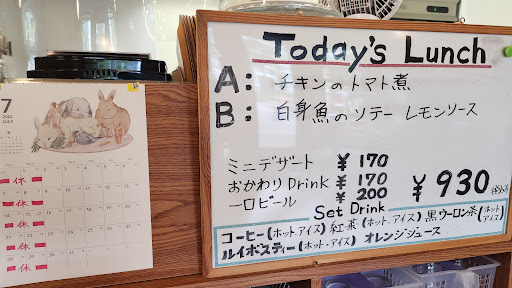 Today's Lunch
A: チキンのトマト煮
B: 白身魚のソテー レモンソース
ミニデザート ¥170
おかわりDrink ¥170
一口ビール ¥200
¥930
Set Drink
コーヒー(ホットアイス) 紅茶(ホット・アイス) 黒ウーロン茶(ホットアイス)
ルイボスティー(ホット・アイス) オレンジジュース
7
2024
JULY
休
休
休
休